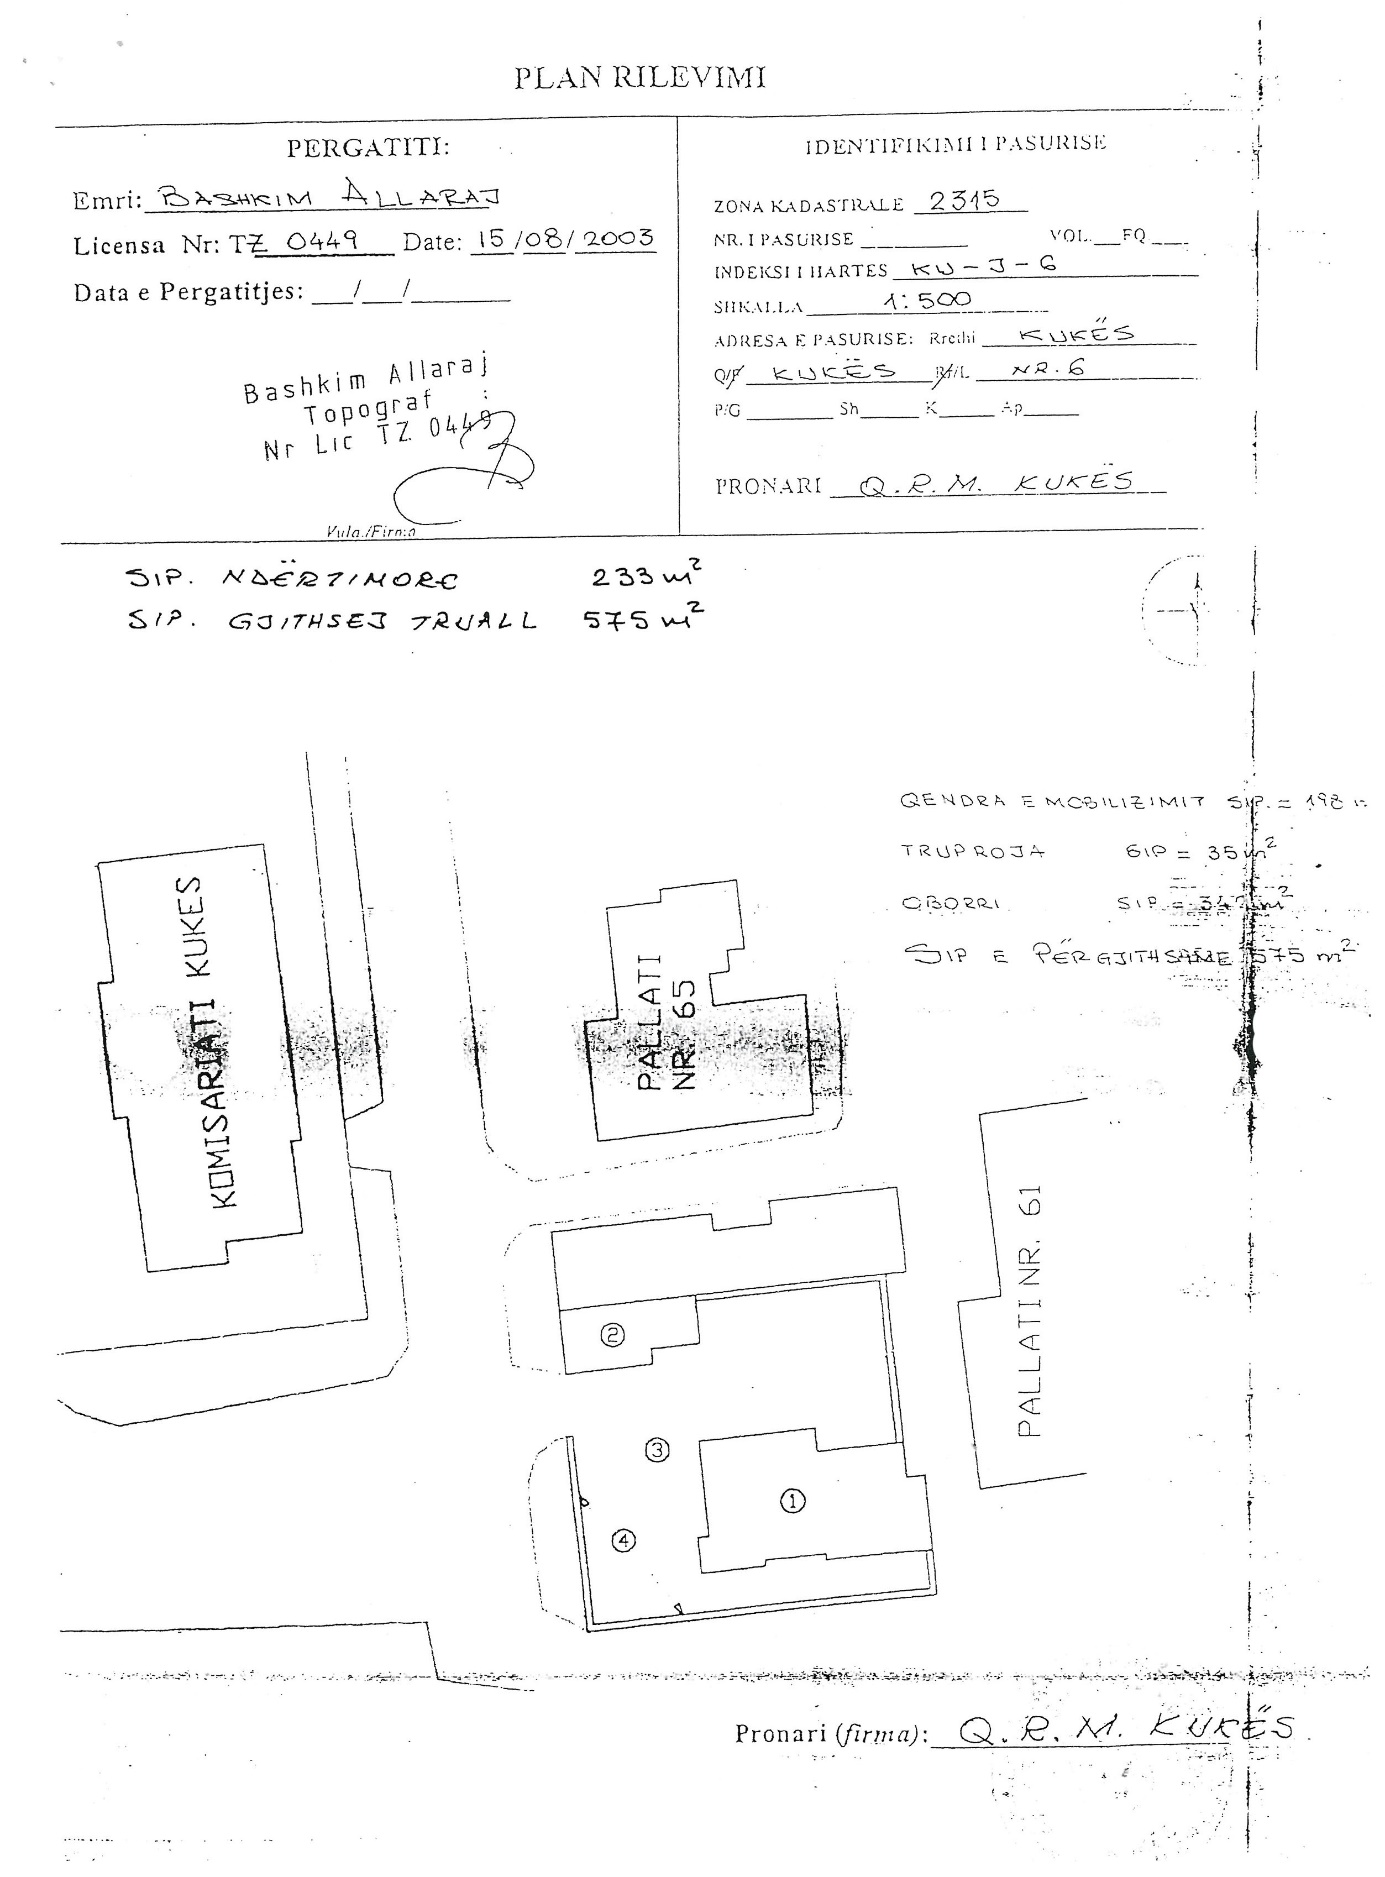 PLAN RILEVIMI
PERGATITI:
Emri: BASHKIM ALLARAJ
Licensa Nr: TZ 0449 Date: 15/08/2003
Data e Pergatitjes: ___/___/______
Bashkim Allaraj
Topograf
Nr Lic TZ 0449
Vula./Firma
IDENTIFIKIMI I PASURISE
ZONA KADASTRALE 2315
NR. I PASURISE ________ VOL.___FQ___
INDEKSI I HARTES KU-J-6
SHKALLA 1:500
ADRESA E PASURISE: Rrethi KUKËS
Q/F KUKËS NR.6
P/G ______ Sh____ K____ Ap____
PRONARI Q.R.M. KUKËS
SIP. NDËRTIMORE 233 m²
SIP. GJITHSEJ TRUALL 575 m²
QENDRA E MOBILIZIMIT SIP. = 198
TRUPROJA SIP = 35 m²
OBORRI SIP = m²
SIP E PËRGJITHSAME 575 m²
KOMISARIATI KUKES
PALLATI
NR. 65
PALLATI NR. 61
2
3
1
4
Pronari (firma): Q.R.M. KUKËS